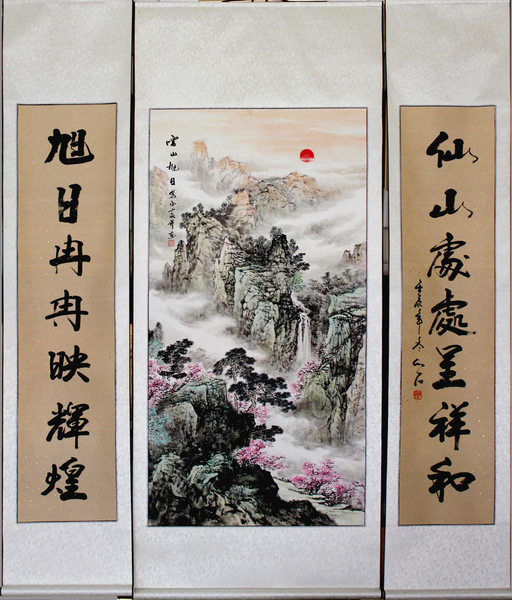 旭日冉冉映輝煌
雲山旭日
仙山處處呈祥和
壬辰年冬